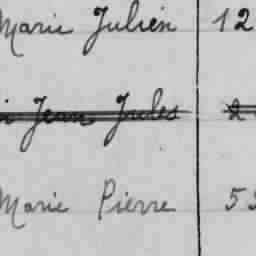 Marie Julien 12
Jean Jules 2
Marie Pierre 5